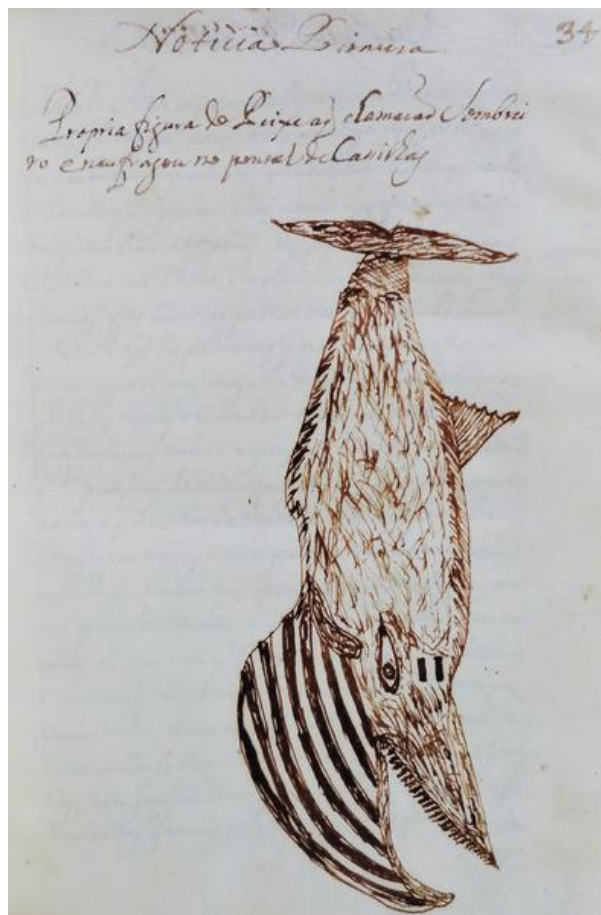 Noticia Primeira
34
Propria figura do Peixe aq̃ chamarão Sombrei
ro e naufragou no pontal de Cassilhas